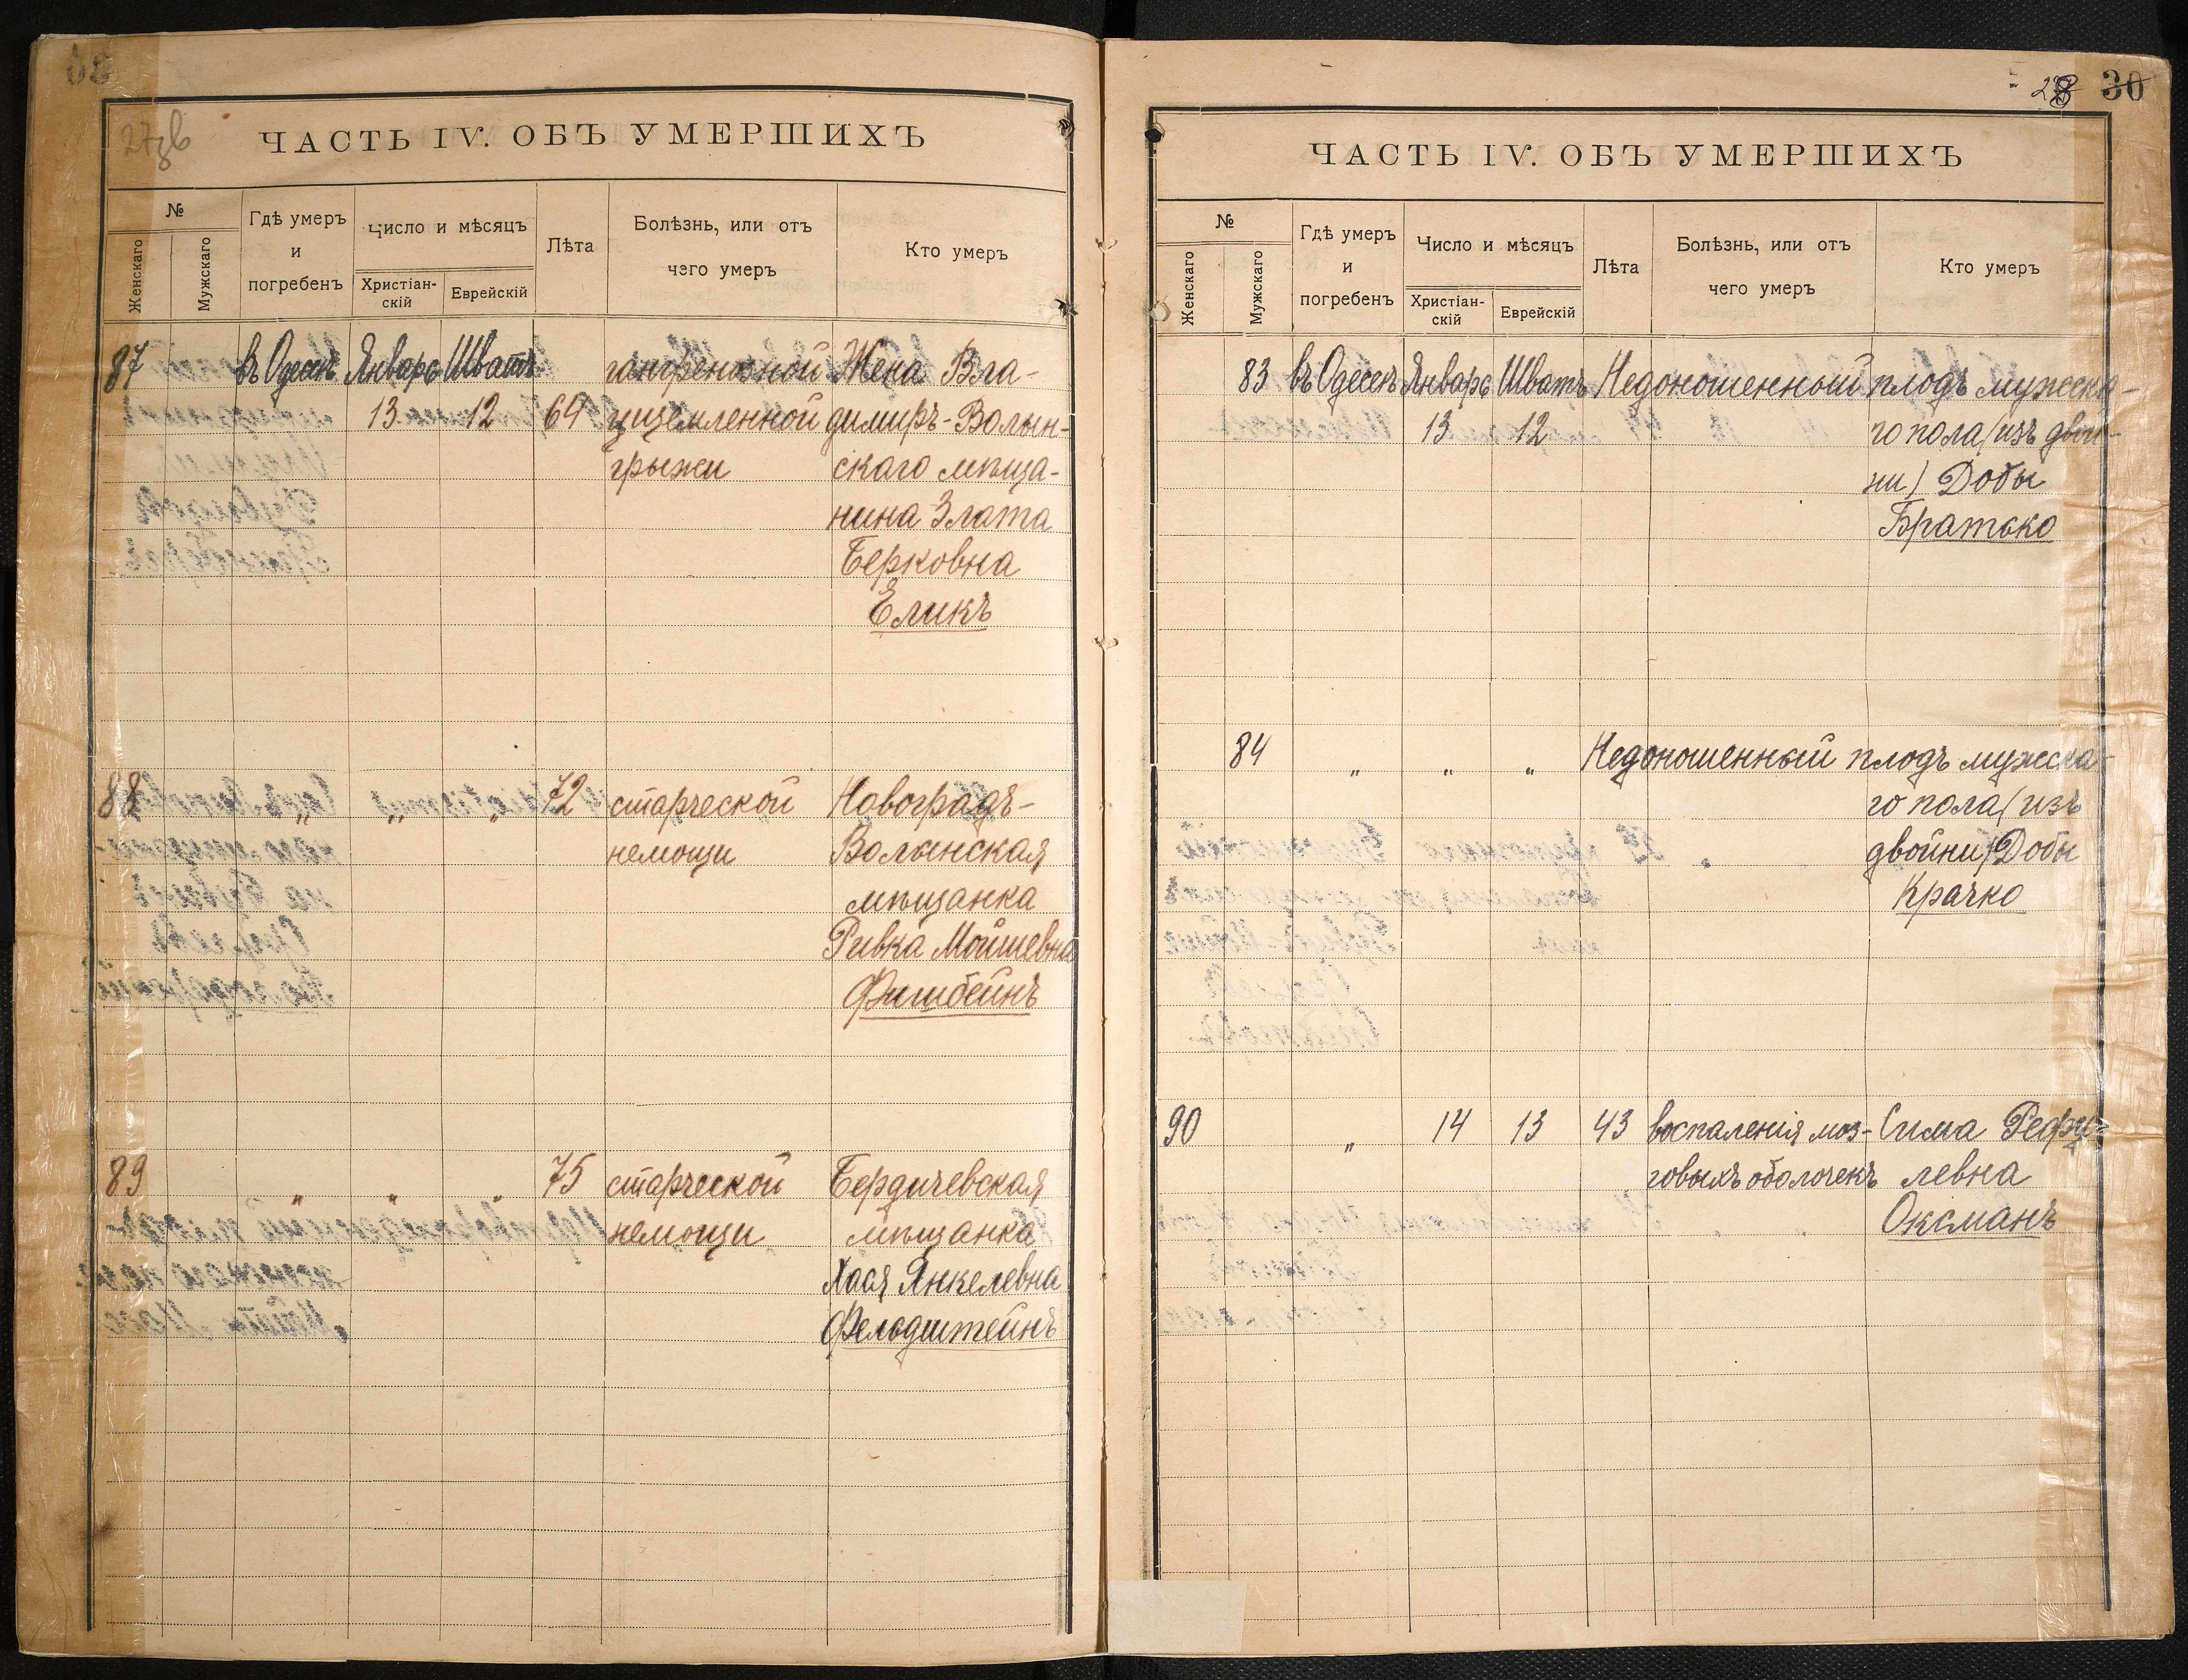 27зв
ЧАСТЬ IV. ОБЪ УМЕРШИХЪ
№
Женскаго
Мужскаго
Гдѣ умеръ
и
погребенъ
Число и мѣсяцъ
Христіан-
скій
Еврейскій
Лѣта
Болѣзнь, или отъ
чего умеръ
Кто умеръ
87 въ Одессѣ Январь Шватъ гангренозной Жена Вла-
13 12 64 ущемленной димиръ-Волын-
грыжи скаго мѣща-
нина Злата
Берковна
Еликъ
88 „ „ „ 72 старческой Новоградъ-
немощи Волынская
мѣщанка
Ривка Мойшевна
Фишбейнъ
89 „ „ „ 75 старческой Бердичевская
немощи мѣщанка
Хася Янкелевна
Фельдштейнъ
28 30
ЧАСТЬ IV. ОБЪ УМЕРШИХЪ
№
Женскаго
Мужскаго
Гдѣ умеръ
и
погребенъ
Число и мѣсяцъ
Христіан-
скій
Еврейскій
Лѣта
Болѣзнь, или отъ
чего умеръ
Кто умеръ
83 въ Одессѣ Январь Шватъ Недоношенный плодъ мужска-
13 12 го пола (изъ двой-
ни) Добы
Братско
84 „ „ „ Недоношенный плодъ мужска-
го пола (изъ
двойни) Добы
Крачко
90 „ 14 13 43 воспаленія моз- Сима Рефу-
говыхъ оболочекъ левна
Оксманъ